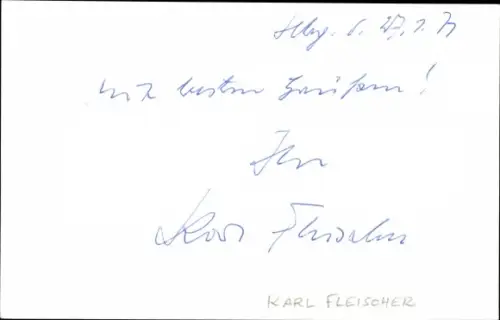 mit besten Grüßen!
Ihr
Karl Fleischer
KARL FLEISCHER